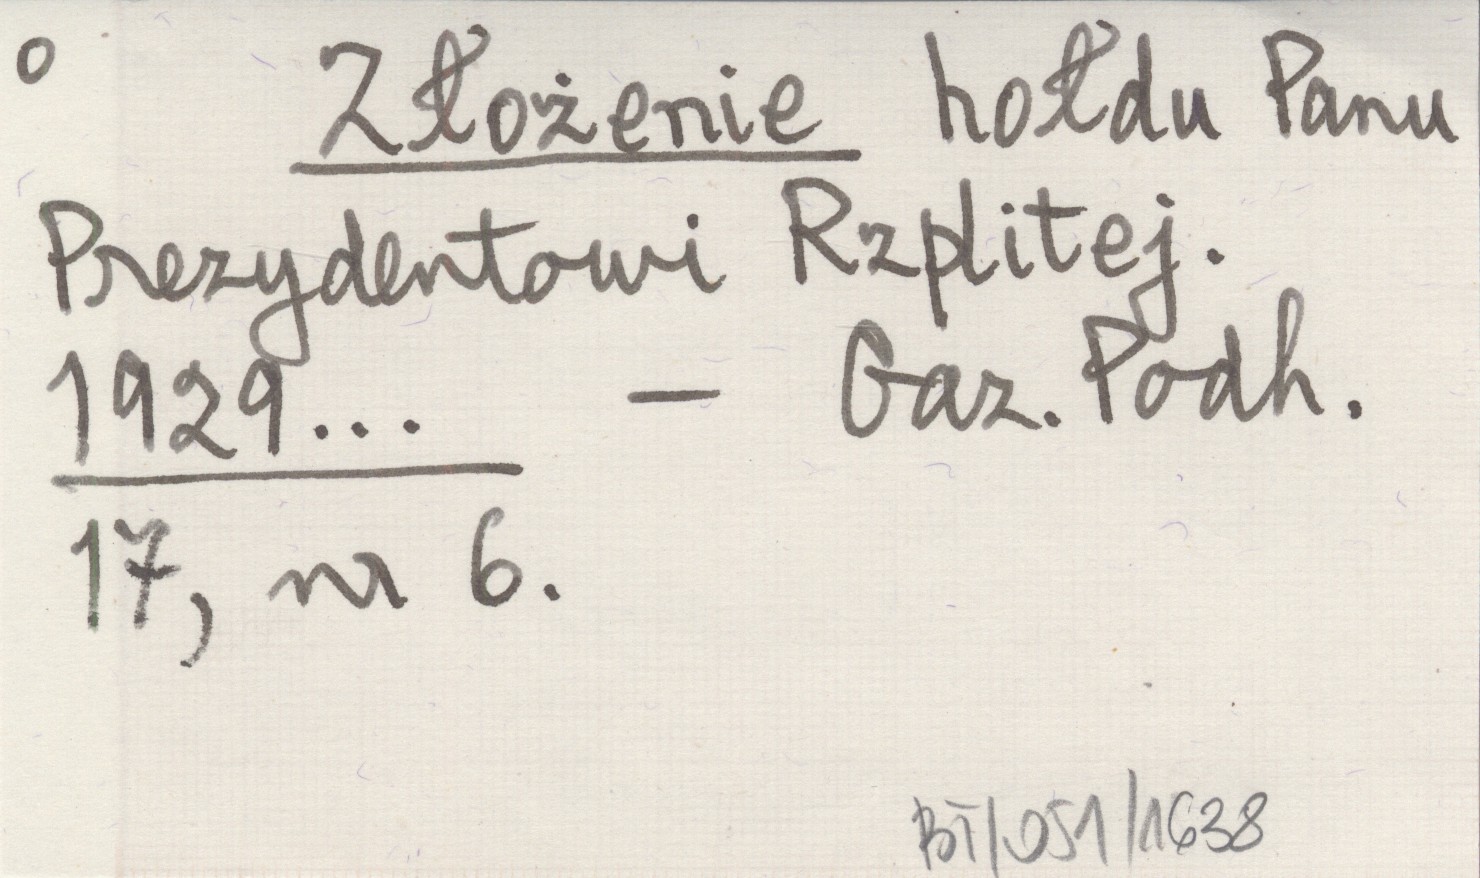 o Złożenie hołdu Panu
Prezydentowi Rzplitej.
1929... — Gaz. Podh.
17, nr 6.
BT/051/1638